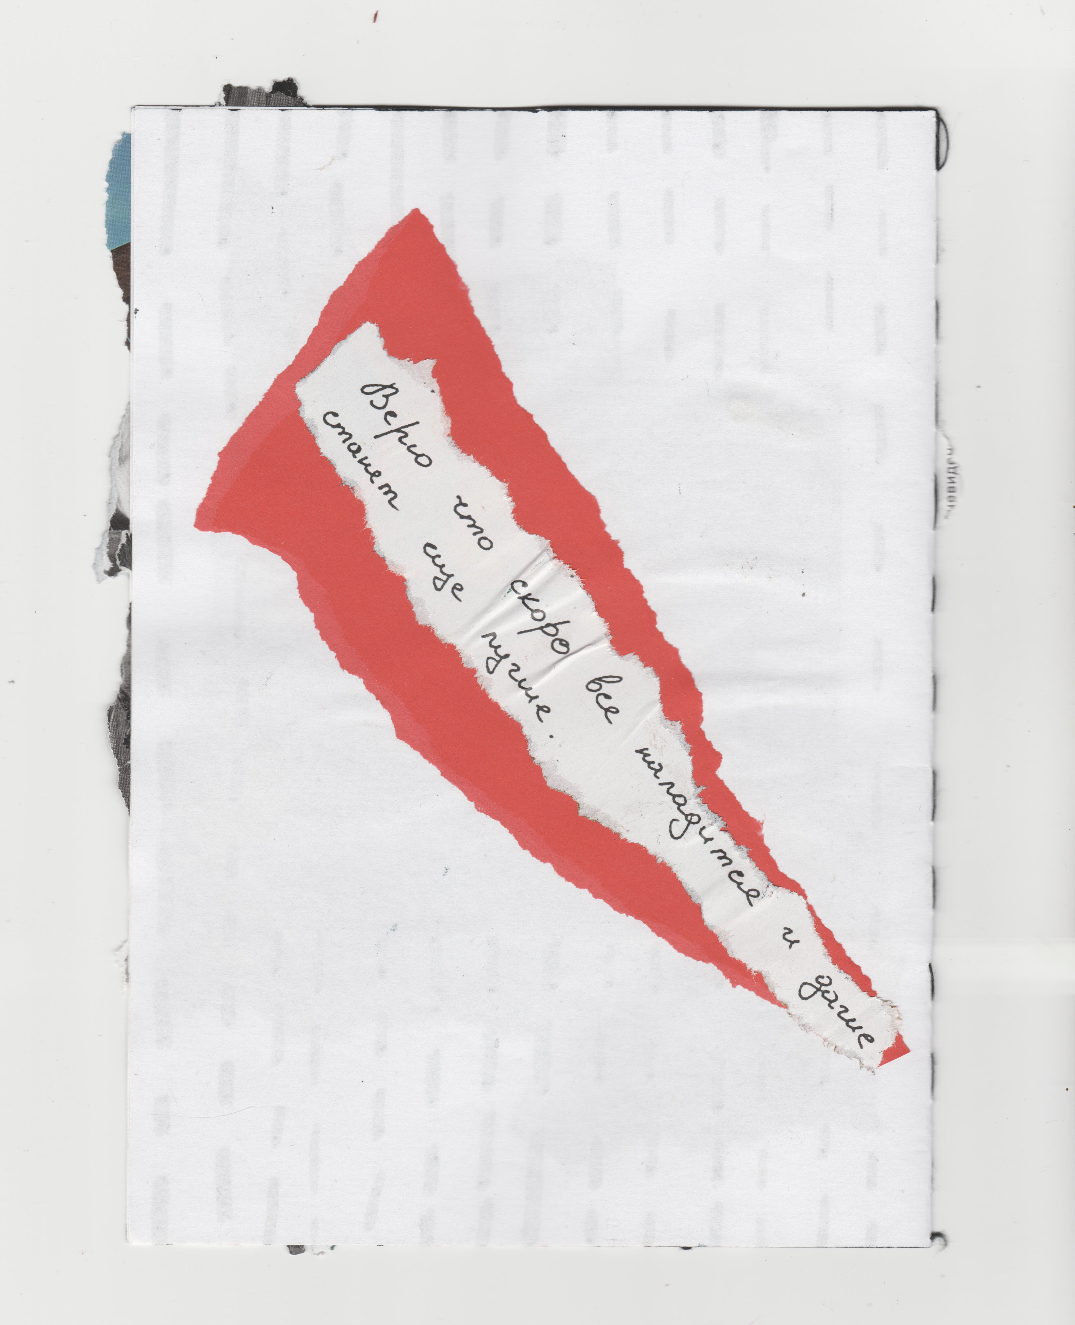 Верю что скоро все наладится и даже
станет еще лучше.